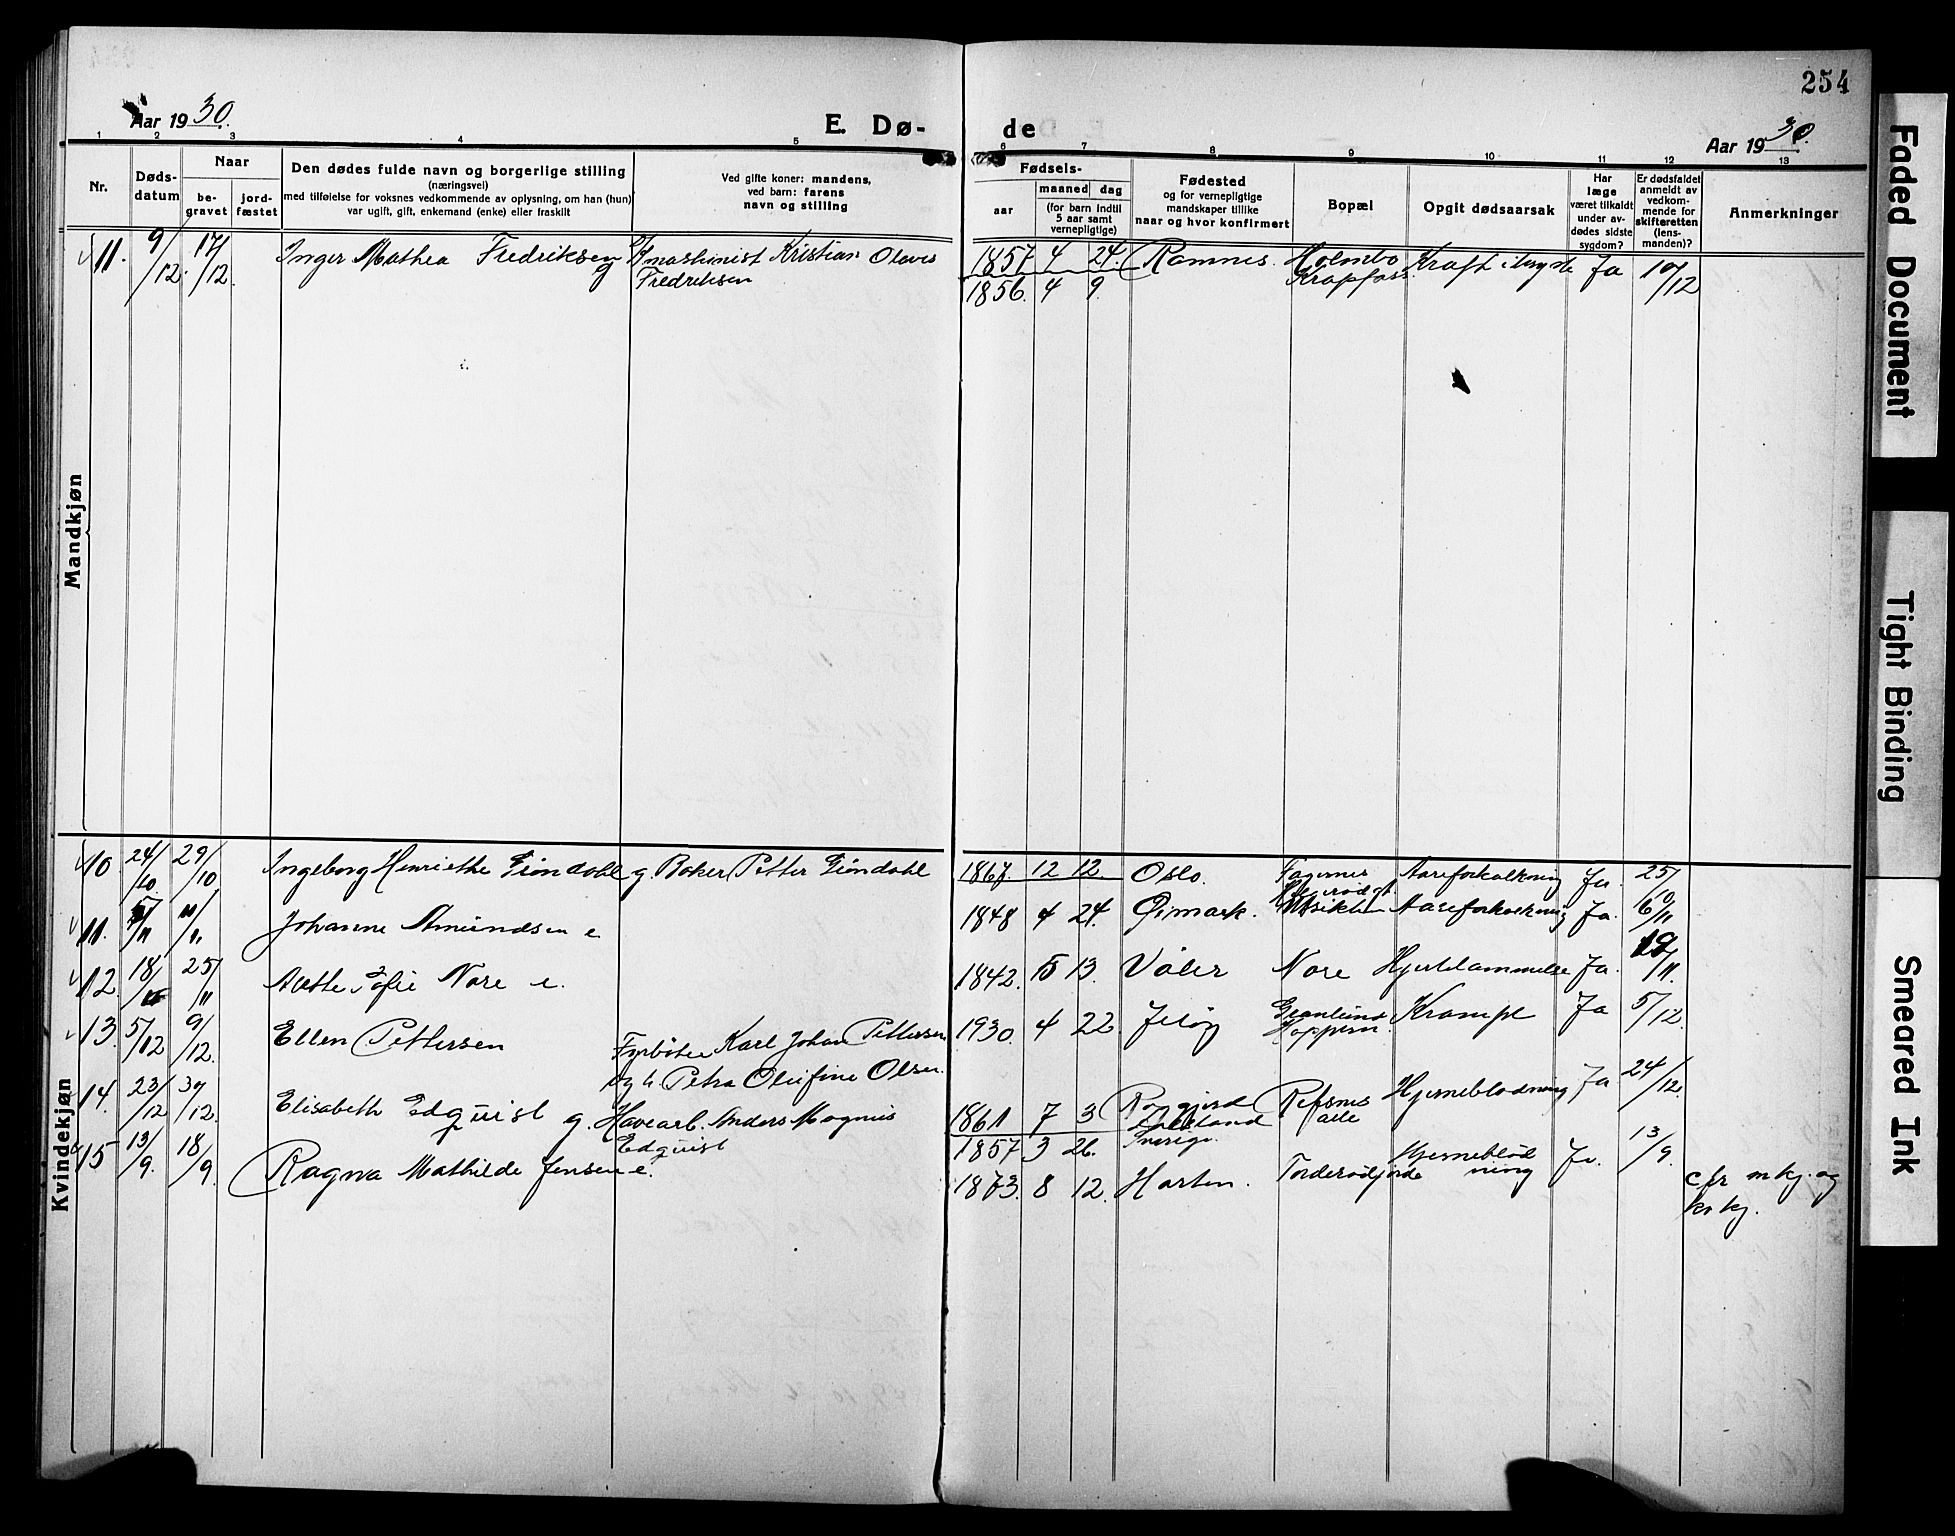 254
Aar 1930.
E. Dø-
de
Aar 1930.
1 2 3 4 5 6 7 8 9 10 11 12 13
Nr.
Døds-
datum
Naar
be-
gravet
jord-
fæstet
Den dødes fulde navn og borgerlige stilling
(næringsvei)
med tilføielse for voksnes vedkommende av oplysning, om han (hun)
var ugift, gift, enkemand (enke) eller fraskilt
Ved gifte koner: mandens,
ved barn: farens
navn og stilling
Fødsels-
aar
maaned dag
(for barn indtil
5 aar samt
vernepligtige)
Fødested
og for vernepligtige
mandskaper tillike
naar og hvor konfirmert
Bopæl
Opgit dødsaarsak
Har
læge
været tilkaldt
under av-
dødes sidste
sygdom?
Er dødsfaldet
anmeldt av
vedkom-
mende for
skifteretten
(lens-
manden)?
Anmerkninger
Mandkjøn
11. 9/12. 17/12. Inger Mathea Fredriksen g maskinist Kristian Olaves 1857 4 24. Ramnes. Holmbo Kraft i bryste Ja 10/12
Fredriksen 1856. 4 9. Krapfoss
Kvindekjøn
10. 24/10 29/10 Ingeborg Henriette Gröndahl g. Baker Petter Gröndahl 1867. 12 12. Oslo. Aareforkalkning Ja. 25/10
11. 5/11 11/11 Johanne Amundsen e 1848 4 24. Øimark. Utsikten Aareforkalkning Ja. 6/11
12. 18/11 25/11 Anette Sofie Nore e. 1842. 5 13. Våler Nore Hjertelammelse Ja. 19/11
13. 5/12 9/12. Ellen Pettersen Fyrböter Karl Johan Pettersen 1930. 4 22. Jeløy Granlund Krampe Ja 5/12.
og h. Petra Olufine Olsen. Koppern
14. 23/12 30/12. Elisabeth Edquist g. Havearb. Anders Magnus 1861 7 3 Refsnes Hjerneblødning Ja 24/12.
alle
Edquist 1857 3 26. Sverige.
15 13/9. 18/9. Ragna Mathilde Jensen e. 1873. 8 12. Horten. Torderødjorde Hjerneblød Ja. 13/9.
ning
cfr mkj. og
kvkj.
Faded Document
Tight Binding
Smeared Ink